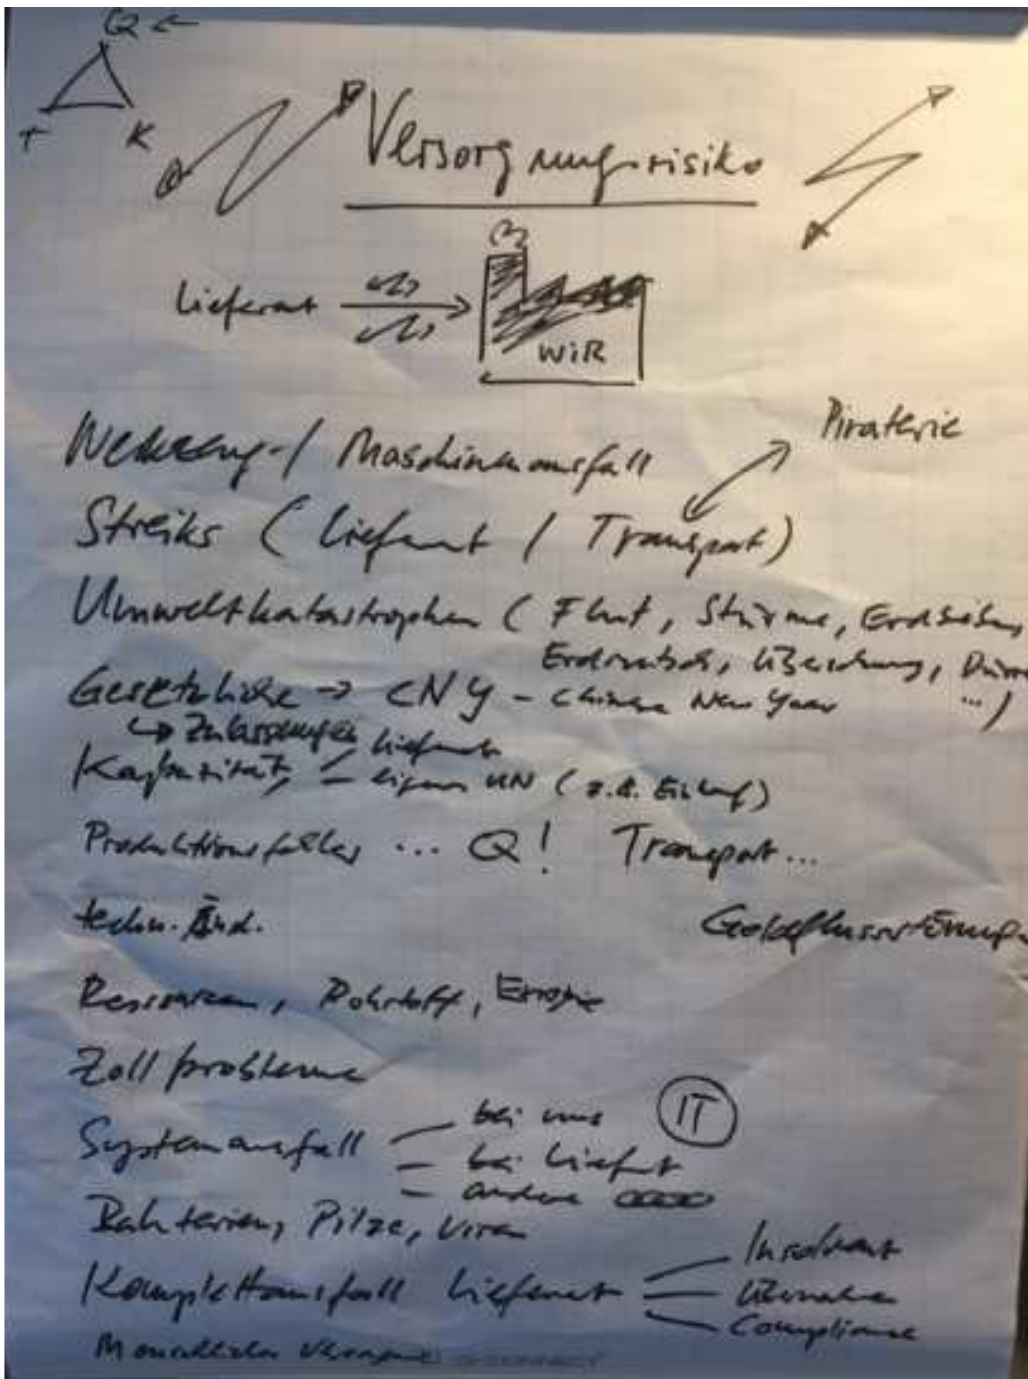 Q
T K
Versorgungsrisiko
Lieferant
WIR
Piraterie
Werkzeug-/ Maschinenausfall
Streiks (Lieferant / Transport)
Umweltkatastrophen (Flut, Stürme, Erdbeben,
Erdrutsch, Dürre
...)
Gesetzliche → CNY - Chinese New Year
↳ Zulassungen
Kapazität - Lieferant
- eigenes UN (z.B. Einkauf)
Produktionsfehler ... Q! Transport...
techn. Änd.
Geldflussstörung
Ressourcen, Rohstoff, Energie
Zollprobleme
Systemausfall - bei uns IT
- bei Lieferant
- andere
Bakterien, Pilze, Viren
Komplettausfall Lieferant - Insolvent
- Übernahme
- Compliance